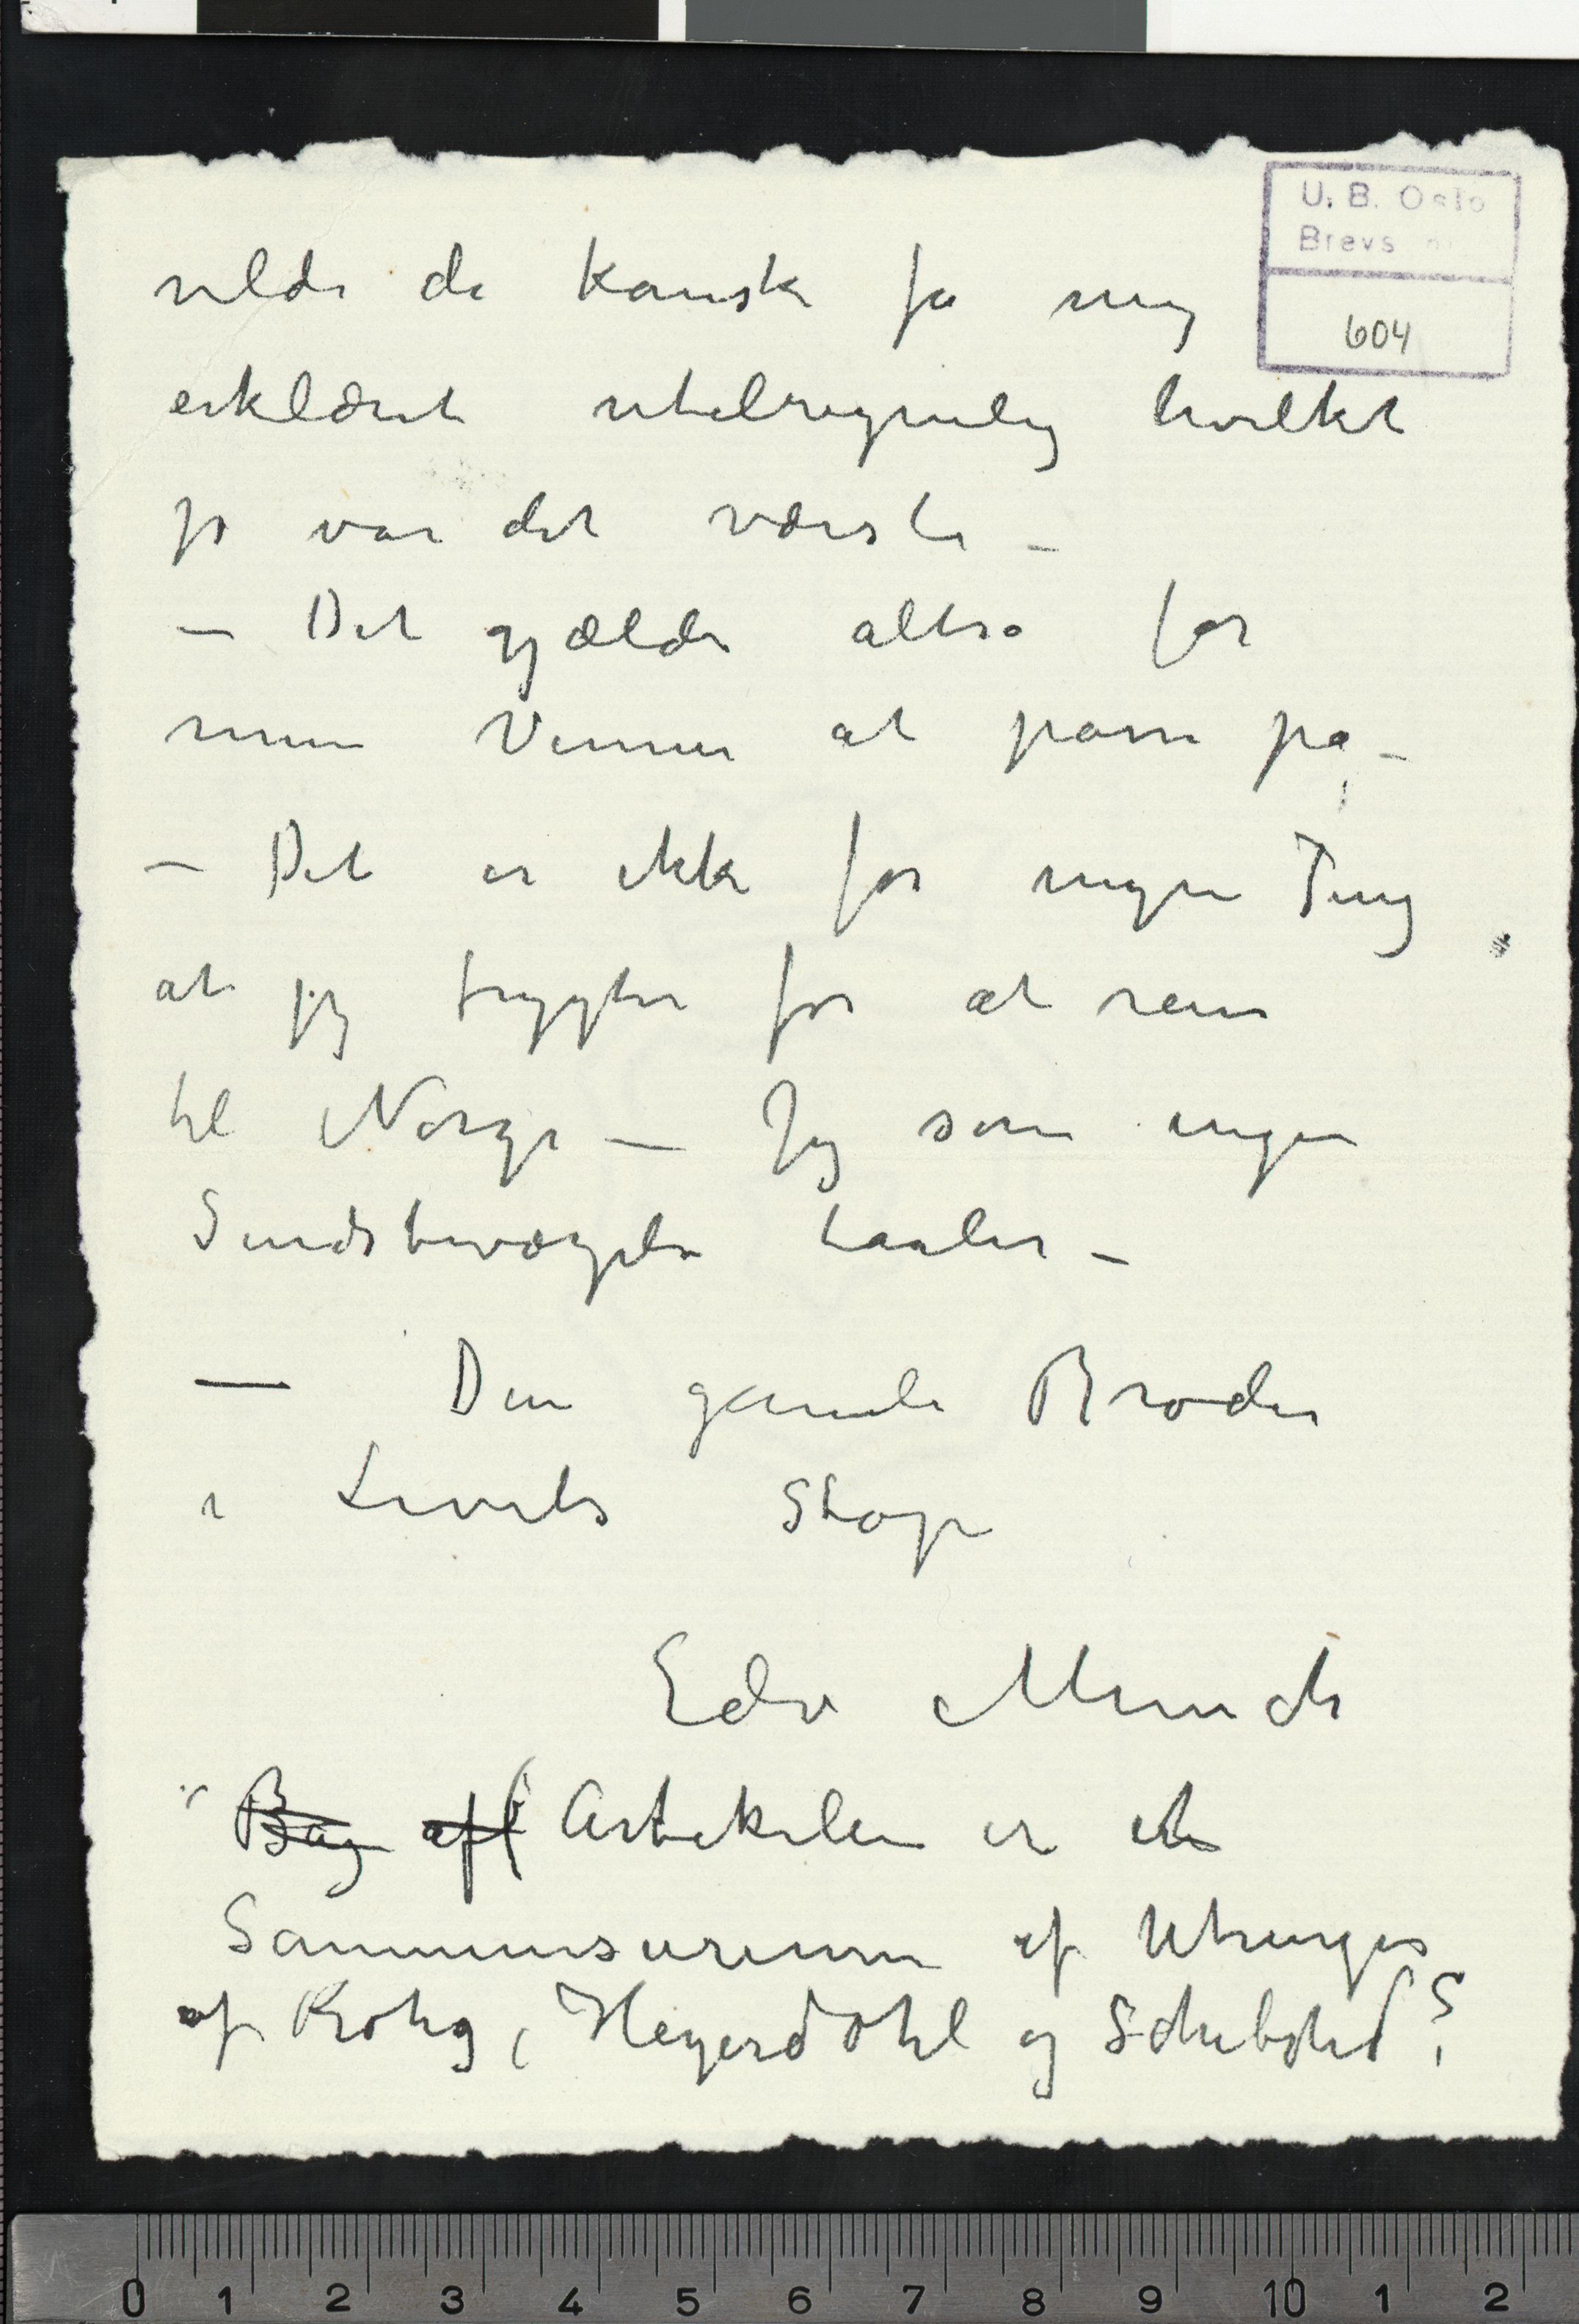 U. B. Oslo
Brevs
604
vilde de kanske få mig
erklæret utilregnelig hvilket
jo var det værste –
– Det gjælder altså for
mine Venner at passe på –
– Det er ikke for ingen Ting
at jeg frygter for at reise
til Norge – Jeg som ingen
Sindsbevægelse taaler –
– Din gamle Broder
i Livets Støpe
Edv Munch
Bag af Artikelen er et
Sammensurium af Utringer
af Krohg, Heyerdahl og Schibsted?
0 1 2 3 4 5 6 7 8 9 10 1 2